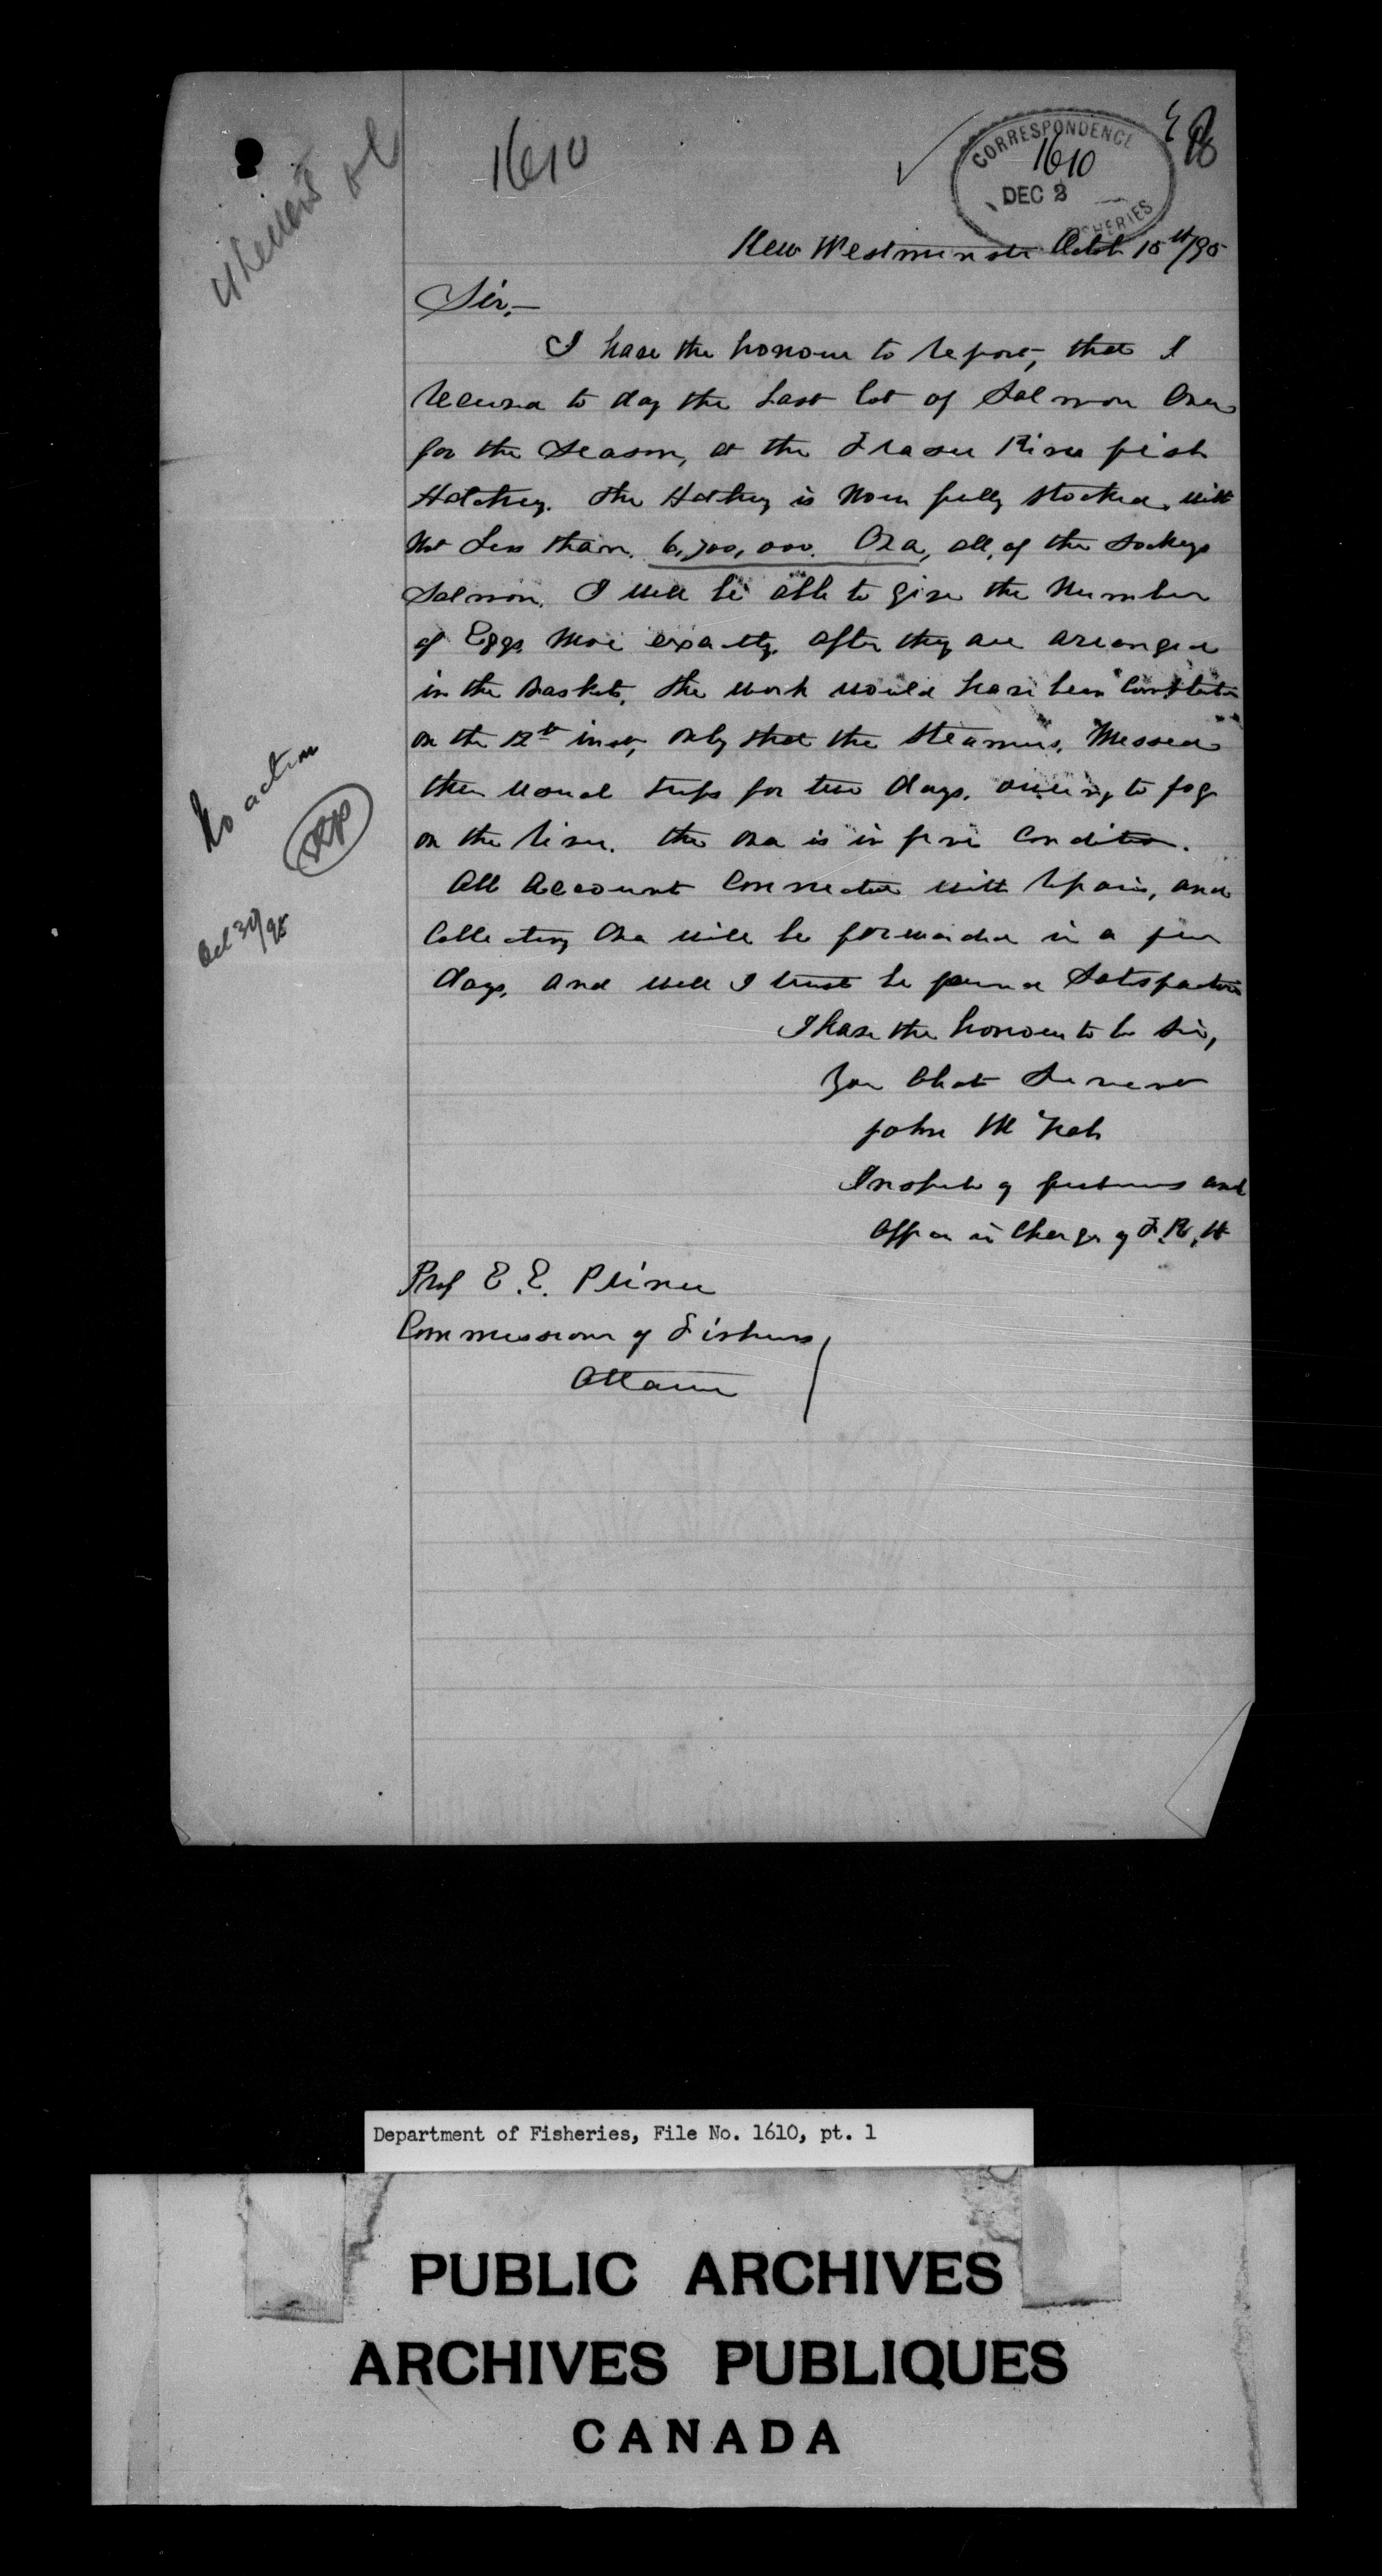 1610
CORRESPONDENCE
1610
DEC 2
FISHERIES
New Westminster Octob 15th/95
Sir,—
I have the honour to report, that I
received to day the last lot of Salmon Ova
for the Season, at the Fraser River fish
Hatchery. The Hatchery is now fully stocked, with
not Less than, 6,700,000. Ova, all, of the Sockeye
Salmon. I will be able to give the Number
of Eggs, more exactly, after they are arranged
in the Baskets, the work would have been Completed
on the 12th inst, only that the Steamers, Messed
their usual trips for two days, owing to fog
on the river. the ova is in fine Condition.
All Account Connected with repairs, and
Collecting Ova will be forwarded in a few
days, and will I trust be found Satisfactory
I have the honour to be Sir,
Your Obdt Servant
John McNab
Inspector of fisheries and
Officer in Charge of F. R. H
Prof E. E. Prince
Commissioner of Fisheries
Ottawa
No action
EEP
Oct 30/95
Department of Fisheries, File No. 1610, pt. 1
PUBLIC ARCHIVES
ARCHIVES PUBLIQUES
CANADA